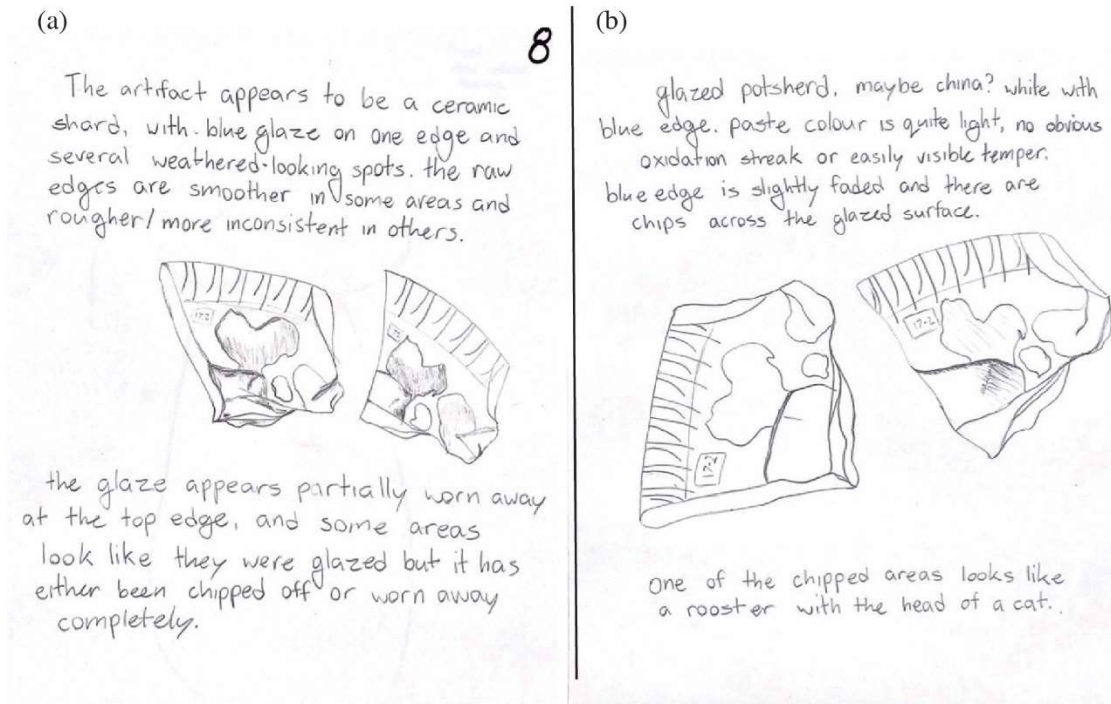 (a)
8
The artifact appears to be a ceramic
shard, with blue glaze on one edge and
several weathered-looking spots. the raw
edges are smoother in some areas and
rougher/more inconsistent in others.
the glaze appears partially worn away
at the top edge, and some areas
look like they were glazed but it has
either been chipped off or worn away
completely.
(b)
glazed potsherd. maybe china? white with
blue edge. paste colour is quite light, no obvious
oxidation streak or easily visible temper.
blue edge is slightly faded and there are
chips across the glazed surface.
17-2
17-2
one of the chipped areas looks like
a rooster with the head of a cat.